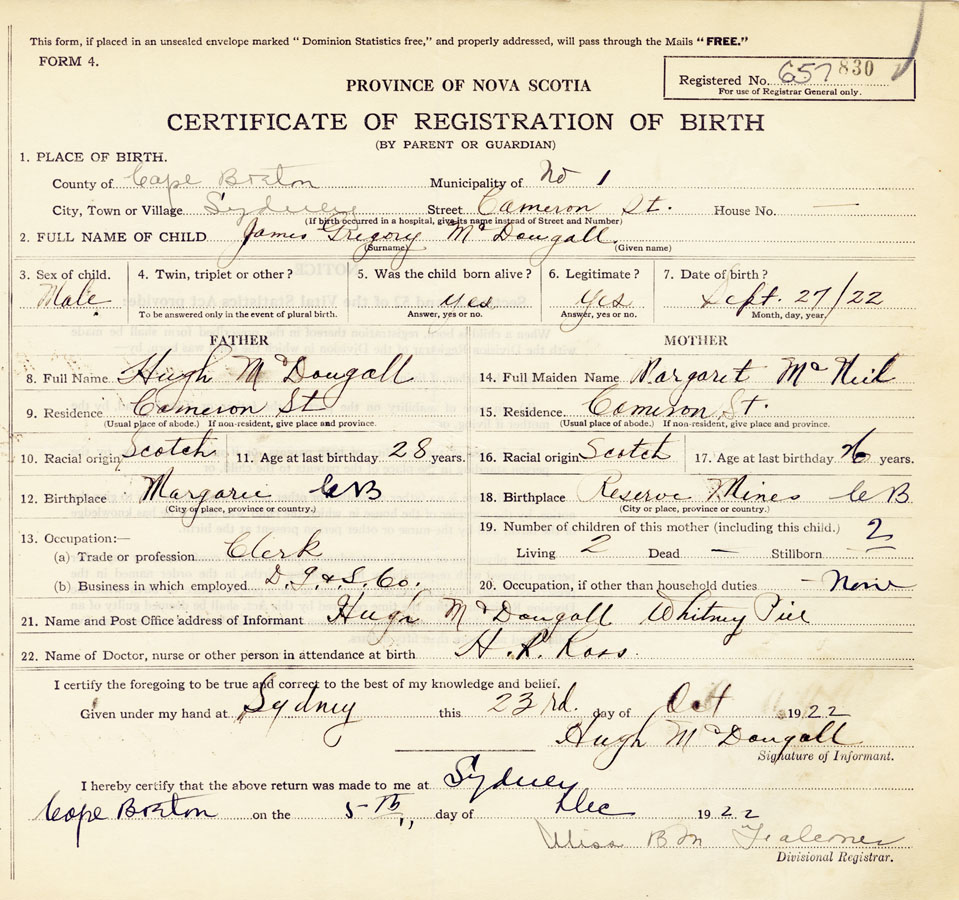 This form, if placed in an unsealed envelope marked "Dominion Statistics free," and properly addressed, will pass through the Mails "FREE."
FORM 4.
Registered No. 657 830
For use of Registrar General only.
PROVINCE OF NOVA SCOTIA
CERTIFICATE OF REGISTRATION OF BIRTH
(BY PARENT OR GUARDIAN)
1. PLACE OF BIRTH.
County of Cape Breton Municipality of No 1
City, Town or Village Sydney Street Cameron St. House No. —
(If birth occurred in a hospital, give its name instead of Street and Number)
2. FULL NAME OF CHILD James Gregory McDougall
(Surname) (Given name)
3. Sex of child. 4. Twin, triplet or other? 5. Was the child born alive? 6. Legitimate? 7. Date of birth?
Male yes yes Sept. 27/22
To be answered only in the event of plural birth. Answer, yes or no. Answer, yes or no. Month, day, year.
FATHER MOTHER
8. Full Name Hugh McDougall 14. Full Maiden Name Margaret McNeil
9. Residence Cameron St 15. Residence Cameron St.
(Usual place of abode.) If non-resident, give place and province. (Usual place of abode.) If non-resident, give place and province.
10. Racial origin Scotch 11. Age at last birthday 28 years. 16. Racial origin Scotch 17. Age at last birthday years.
12. Birthplace Margarie CB 18. Birthplace Reserve Mines CB
(City or place, province or country.) (City or place, province or country.)
19. Number of children of this mother (including this child.) 2
13. Occupation:—
(a) Trade or profession Clerk Living 2 Dead — Stillborn —
(b) Business in which employed D. I. & S. Co. 20. Occupation, if other than household duties - None
21. Name and Post Office address of Informant Hugh McDougall Whitney Pier
22. Name of Doctor, nurse or other person in attendance at birth H. R. Ross.
I certify the foregoing to be true and correct to the best of my knowledge and belief.
Given under my hand at Sydney this 23rd. day of Oct 1922
Hugh McDougall
Signature of Informant.
I hereby certify that the above return was made to me at Sydney
Cape Breton on the 5th day of Dec 1922
Miss B M Falconer
Divisional Registrar.